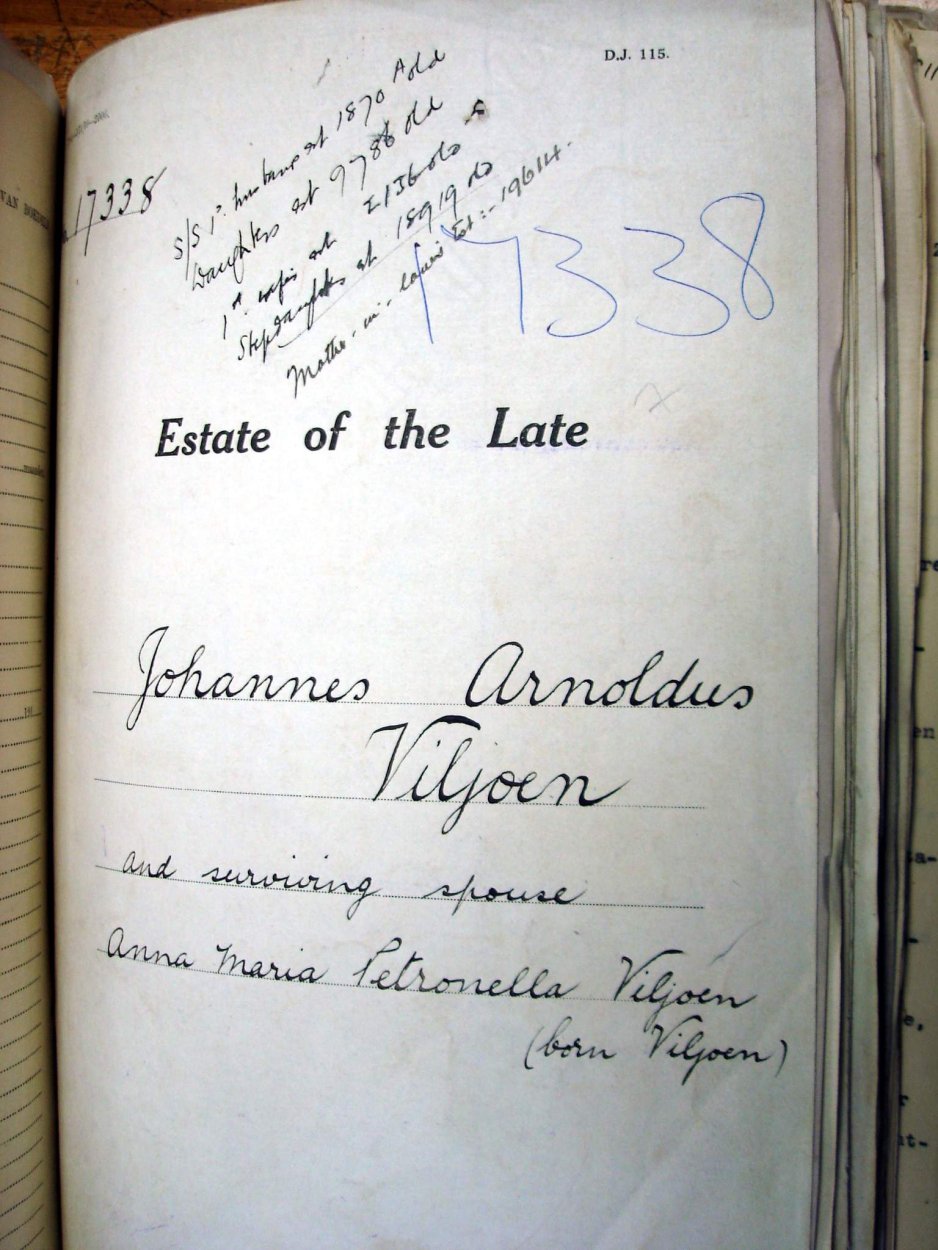 D.J. 115.
17338
S/S 1st husband est 1870 A old
Daughters est 9788 old
1st wifes est E1136 old
Stepdaughters est 18919 old
Mother-in-laws Est :- 19614.
17338
Estate of the Late
Johannes Arnoldus
Viljoen
and surviving spouse
Anna Maria Petronella Viljoen
(born Viljoen)